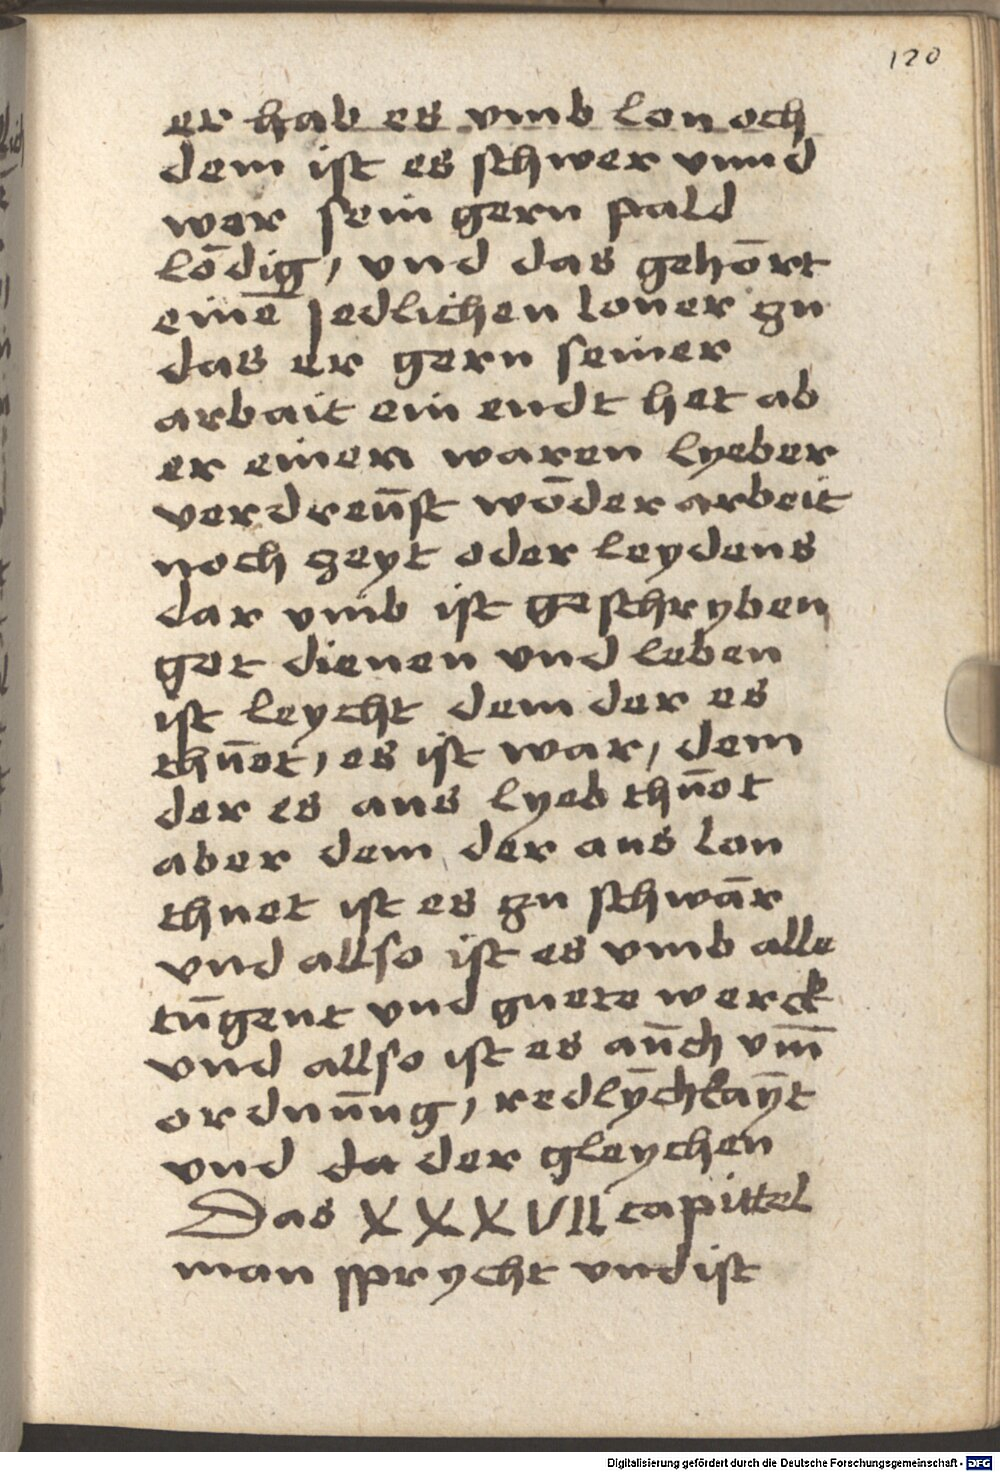 120
er hab es vmb lon och
dem ist es schwer vnnd
wer sein gern pald
lōdig, vnd das gehōrt
einē jedlichen loner zu
das er gern seiner
arbait ein endt het ab
er einen waren lyeber
verdreūst wōder arbeit
noch zeyt oder leydens
dar vmb ist geschryben
got dienen vnd leben
ist leycht dem der es
thūot, es ist war, dem
der es aus lyeb thūot
aber dem der aus lon
thuet ist es zu schwār
vnd allso ist es vmb alle
tūgent vnd guete werck
vnd allso ist es aūch vm̄
ordnūng, redlȳchkaȳt
vnd da der gleychen
Das XXXVII capittel
man sprycht vnd ist
Digitalisierung gefördert durch die Deutsche Forschungsgemeinschaft - DFG